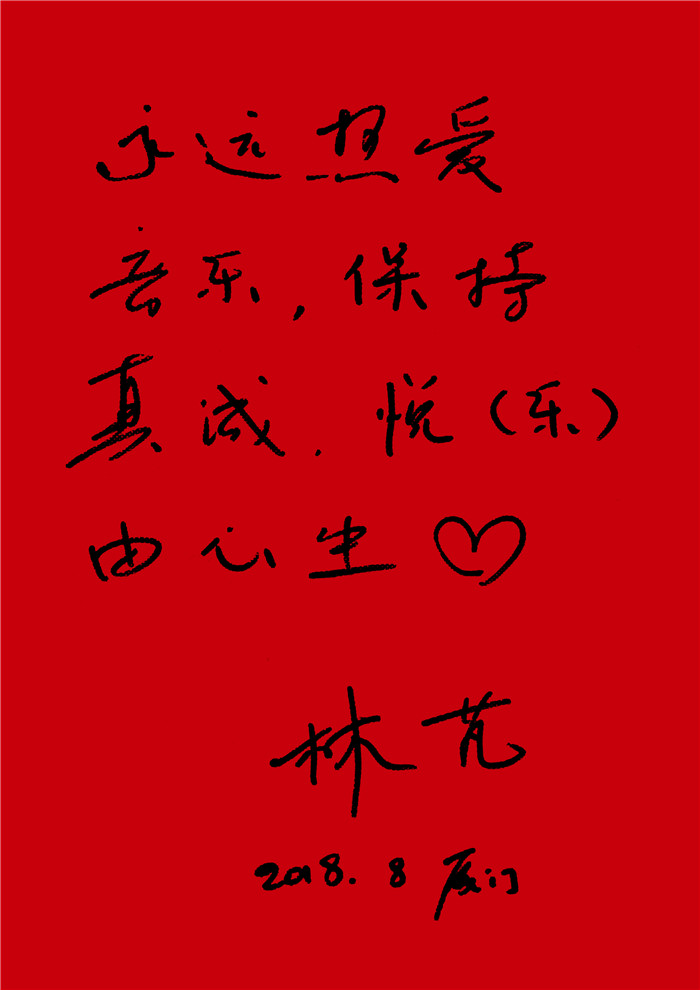 永远热爱
音乐,保持
真诚.悦(乐)
由心生♡
林芃
2018.8 厦门